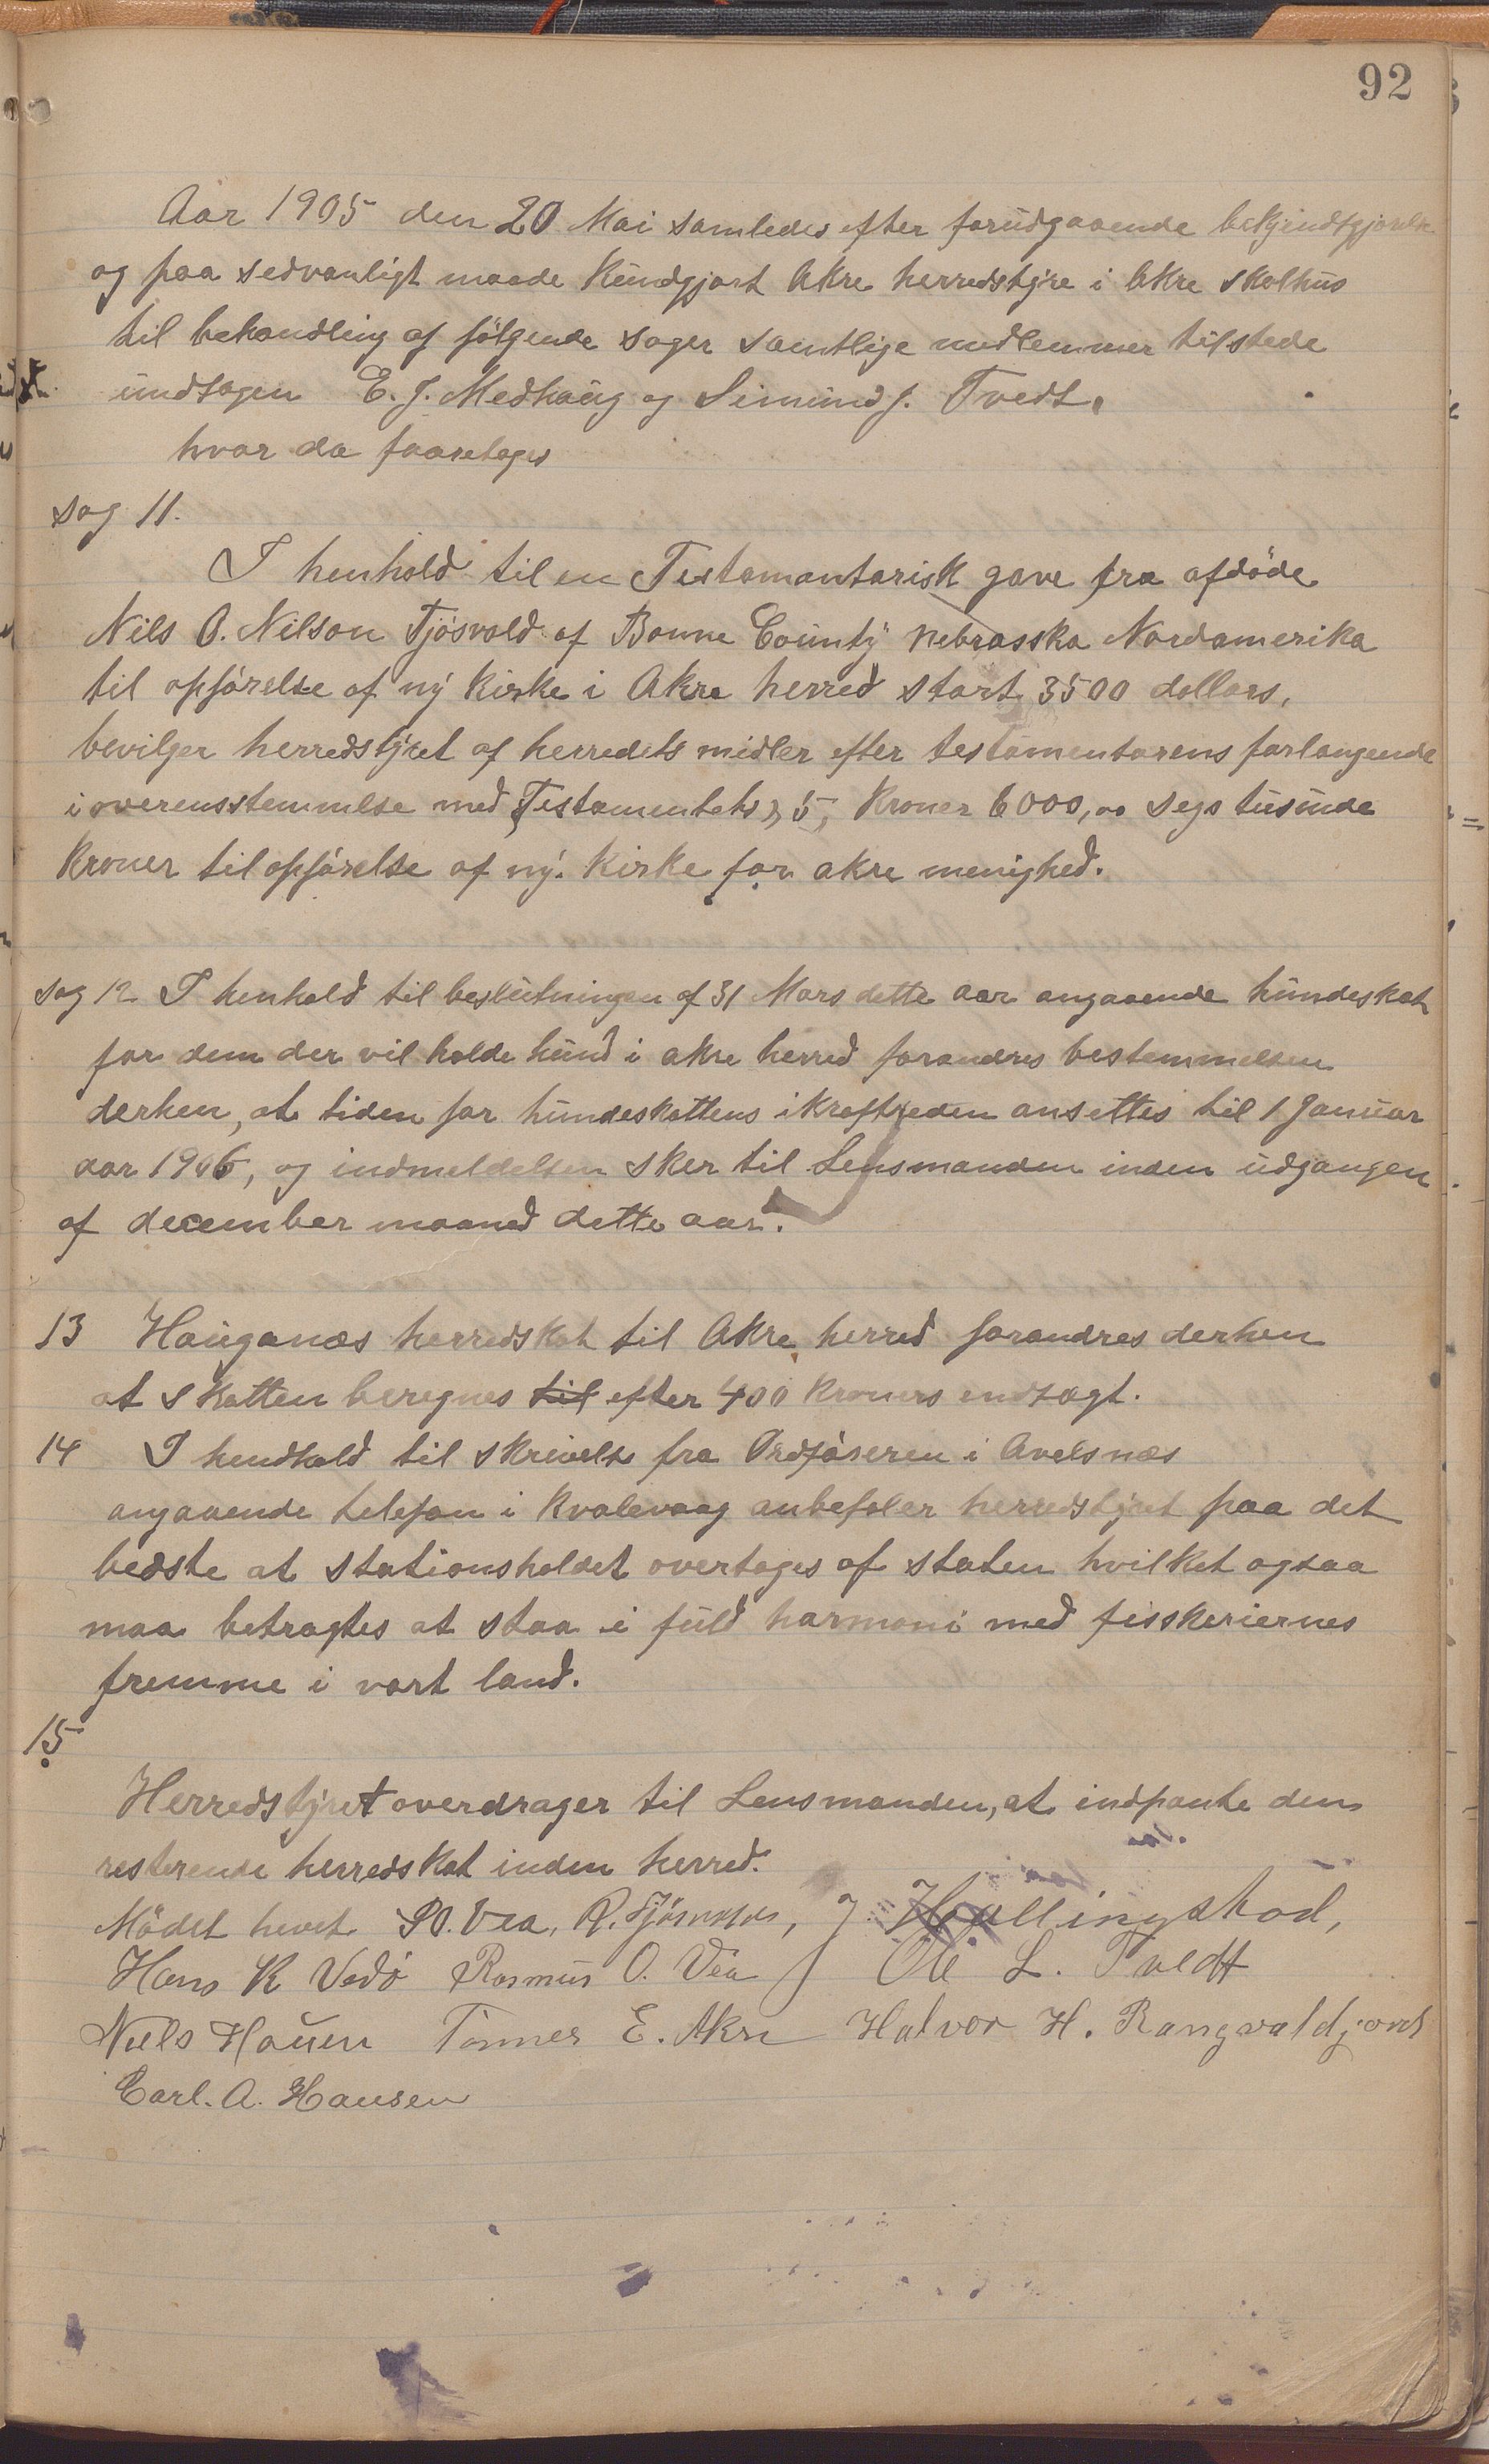 92
Aar 1905 den 20 Mai samledes efter forudgaaende bekjendtgjørelse
og paa sedvanligt maade kundgjort Akre herredstyre i Akre skolhus
til behandling af følgende sager samtlige medlemmer tilstede
undtagen E. J. Medhaug og Simund J. Tvedt.
hvor da foaretages
sag 11.
I henhold til en Testamantarisk gave fra afdøde
Nils O. Nilson Tjøsvold af Boune County Nebrasska Nordamerika
til opførelse af ny kirke i Akre herred stort 3500 dollars,
bevilger herredstyret af herredets midler efter testamentarens forlangende
i overensstemmelse med Testamentets § 5, Kroner 6000,00 segs tusinde
Kroner til opførelse af ny kirke for akre menighed.
sag 12 I henhold til beslutningen af 31 Mars dette aar angaaende hundeskat
for dem der vil holde hund i akre herred forandres bestemmelsen
derhen, at tiden for hundeskattens ikrafttreden ansettes til 1 Januar
aar 1906, og indmeldelsen sker til Lensmanden inden udgangen
af december maaned dette aar.
13 Hauganæs herredskat til Akre herred forandres derhen
at skatten beregnes til efter 400 kroners indtægt.
14 I hendhold til skrivelse fra Ordføreren i Avelsnæs
angaaende telefon i Kvalevaag anbefaler herredstyret paa det
bedste at stationsholdet overtages af staten hvilket ogsaa
maa betragtes at staa i fuld harmoni med fisskeriernes
fremme i vort land.
15
Herredstyret overdrager til Lensmanden, at indpante den
resterende herredskat inden herred.
Mødet hevet P.O. Vea, R. J. Hallingskod,
Hans K Vedø Rasmus O. Vea Ole L. Tvedt
Niels Hauen Tønnes E. Akre Halvor H. Rangvaldjord
Carl. A. Hansen